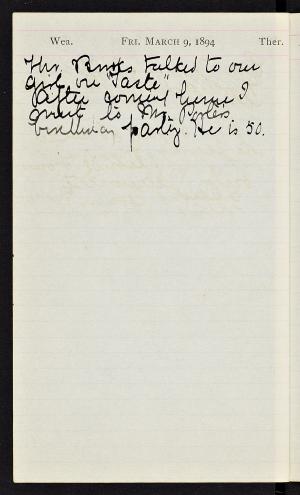 Wea. FRI. MARCH 9, 1894 Ther.
talked to our
girls on "Taste"
After coming home I
went to Mr.
birthday party. He is 50.